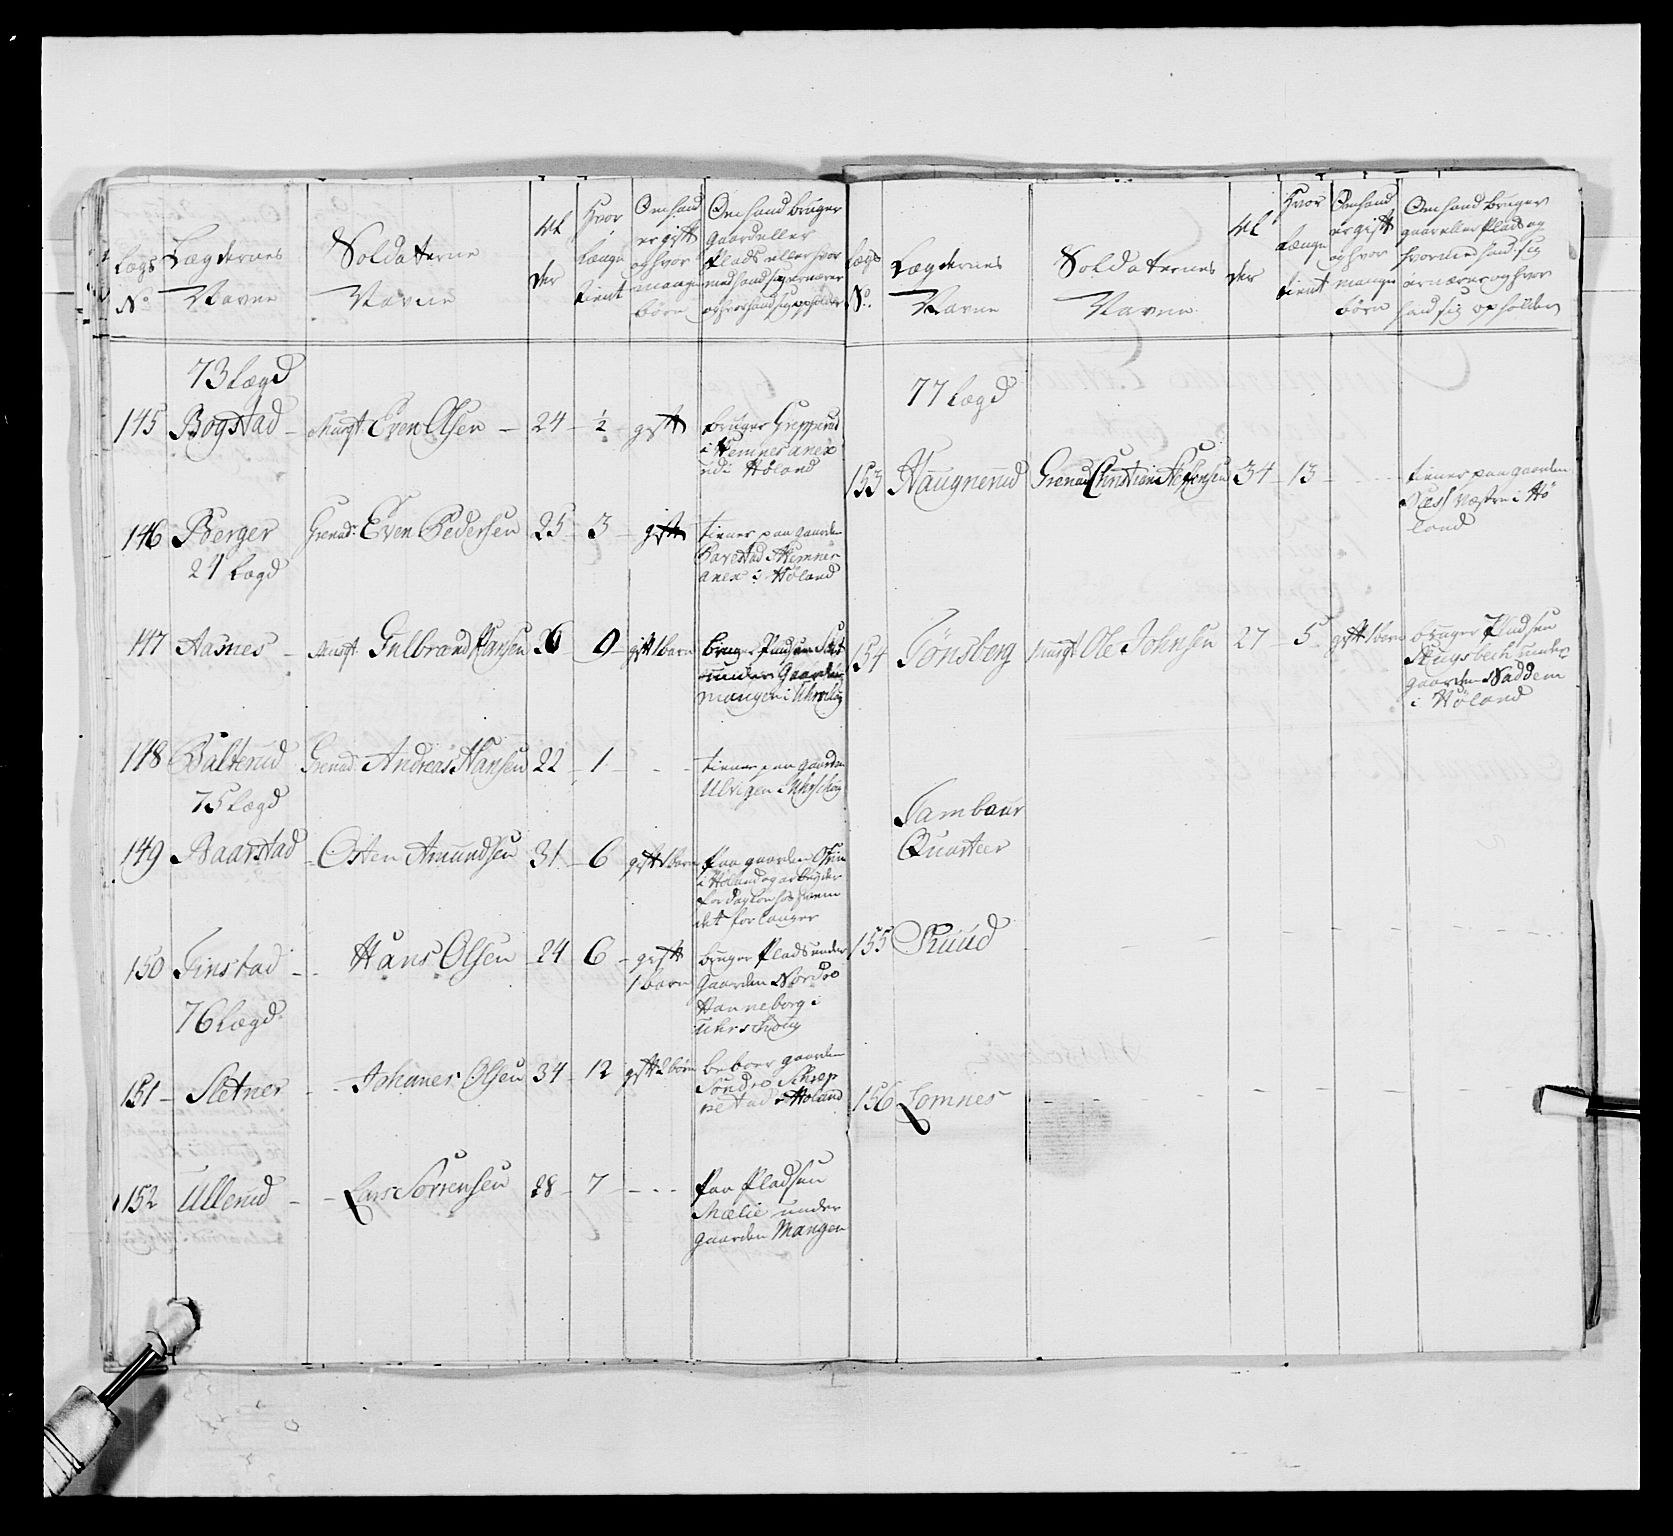 Lægs
No
Lægdernes
Navne
Soldaterne
Navne
Al
der
Hvor
længe
tient
Om hand
er gift
og hvor
mange
børn
Om hand bruger
Gaard eller
Plads eller hvor
med hand sig ernærer
og hvor hand sig opholder
73 Lægd
145 Bogstad - Musqt Even Olsen - 24 - ½ - gift
bruger
i Hemnes anex
udi Høland
146 Berger Grenad: Even Pedersen 25 - 3 - gift
tiener paa gaarden
i Hemnes
anex i Høland
24 Lægd
147 Aasnes - Musqt Gulbrand Hansen 36 9 gift 1 barn
bruger Pladsen
under Gaarden
mangen i Uhrschoug
148 Balterud Grenad: Andreas Hansen 22 - 1 - - -
tiener paa gaarden
Ulvigen i Uhrschoug
75 Lægd
149 Baarstad - Osten Amundsen 31 - 6 gift 1 barn
Paa gaarden
i Høland og arbeyder
for dagløn hos hvem
det forlanger
150 Finstad - - Hans Olsen - 24 - 6 - gift
1 barn
bruger Plads under
Gaarden Nordre
Hanneborg i
Uhrschoug
76 Lægd
151 - Sletner - - Johanes Olsen 34 - 12 gift 2 børn
beboer gaarden
Søndre
i Høland
152 Ullerud - - Lars Sørrensen 28 - 7 - - - -
Paa Pladsen
Mælie under
gaarden Mangen
Lægs
No.
Lægdernes
Navne
Soldaternes
Navne
Al
der
Hvor
Længe
tient
Om hand
er gift
og hvor
mange
børn
Om hand bruger
gaar eller Plads og
hvormed hand sig
ernærer og hvor
hand sig opholder
77 Lægd
153 Haugnerud Grenad Christian Steffensen 34 - 13 - - - -
tiener paa gaarden
Næss Vestre i Hø
land
154 Tønsberg Musqt Ole Johnsen 27 - 5 gift 1 barn
bruger Pladsen
under
gaarden Naddem
i Høland
Tambour
Quarteer
155 Kuud
156 Lomnes